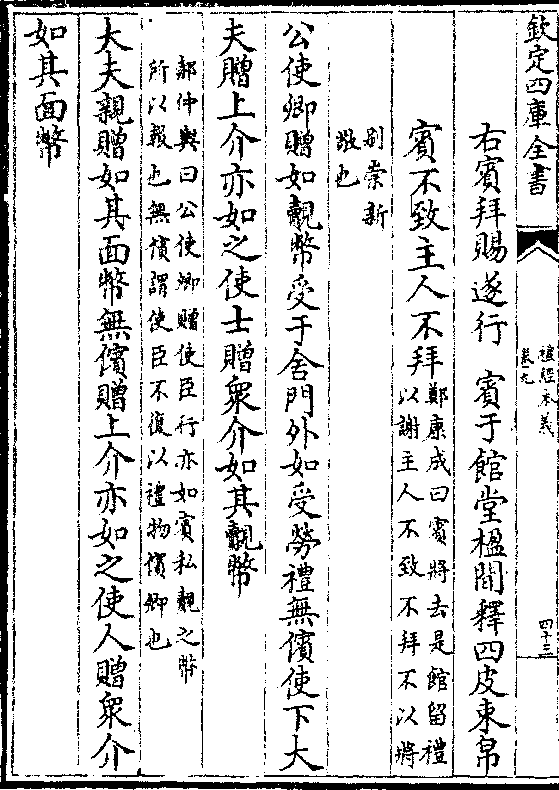 欽定四庫全書
禮經本義
卷九
四十三
右賓拜賜遂行　賓于館堂楹間釋四皮束帛
賓不致主人不拜鄭康成曰賓將去是館留禮
以謝主人不致不拜不以將
別崇新
敬也
公使卿贈如覿幣受于舍門外如受勞禮無儐使下大
夫贈上介亦如之使士贈衆介如其覿幣
郝仲輿曰公使卿贈使臣行亦如賓私覿之幣
所以報也無儐謂使臣不復以禮物儐卿也
大夫親贈如其面幣無儐贈上介亦如之使人贈衆介
如其面幣